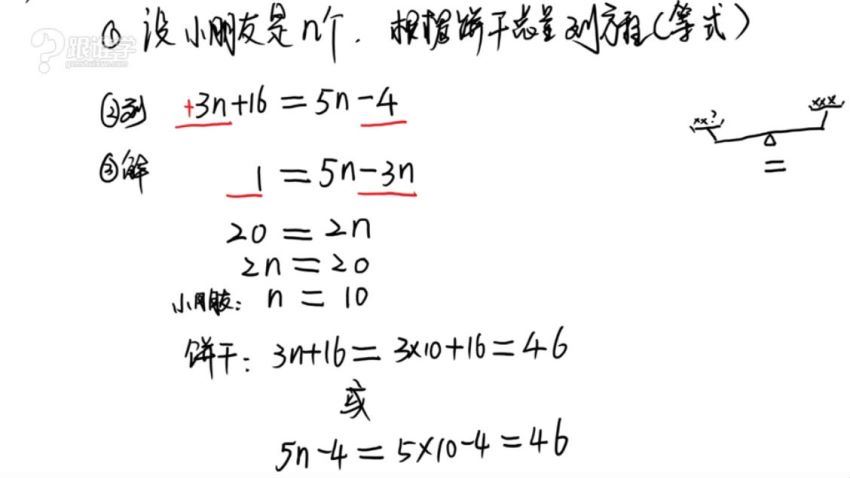 跟谁学
genshuixue.com
① 设小朋友是n个. 根据饼干总量列方程(等式)
②列 +3n+16=5n-4
xx? xxx
=
③解 1=5n-3n
20=2n
2n=20
小朋友: n=10
饼干: 3n+16=3×10+16=46
或
5n-4=5×10-4=46